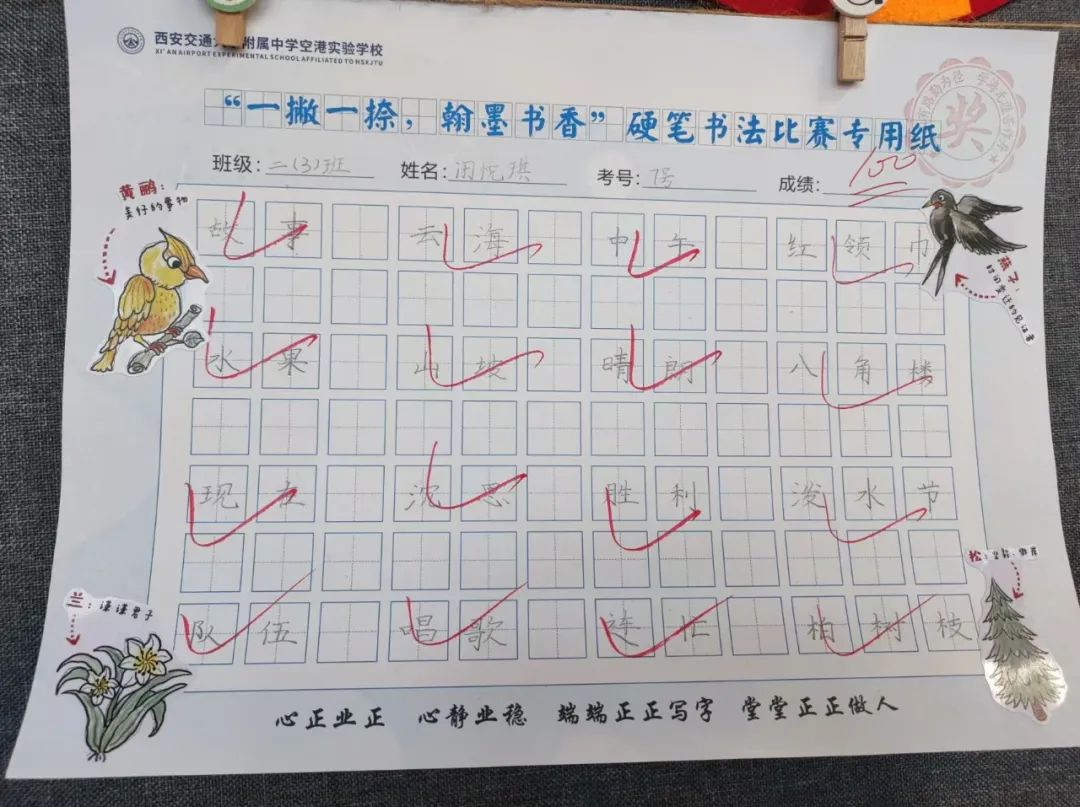 西安交通大学附属中学空港实验学校
XI'AN AIRPORT EXPERIMENTAL SCHOOL AFFILIATED TO HSXJTU
“一撇一捺，翰墨书香”硬笔书法比赛专用纸
班级：二(3)班 姓名：闲悦琪 考号：7号 成绩：100
奖
黄鹂：
美好的事物
燕子：
时间变迁的见证者
故事 云海 中午 红领巾
水果 山坡 晴朗 八角楼
现在 沈思 胜利 泼水节
队伍 唱歌 连忙 柏树枝
兰：谦谦君子
松：
心正业正 心静业稳 端端正正写字 堂堂正正做人